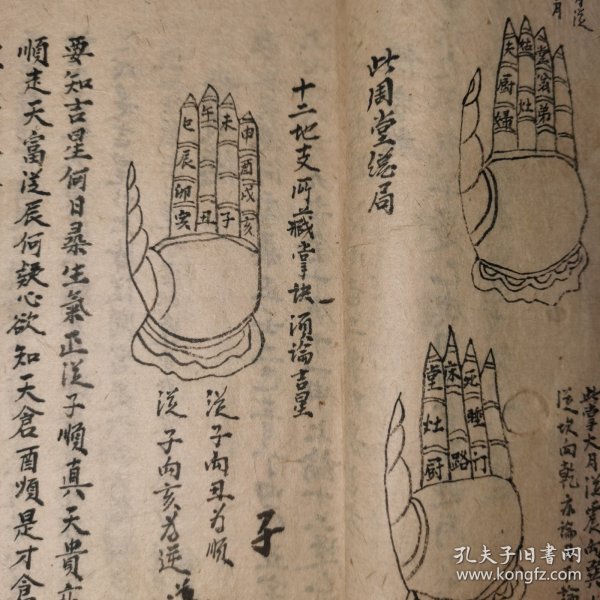 月
夫姑堂翁弟
厨灶
婦
此周堂總局
堂床死睡門
灶
厨路
從坎向乾
十二地支所藏掌訣須論吉星
巳午未申
辰酉
卯戌
丑子亥
從子向丑為順
從子向亥為逆
子
要知吉星何日尋生氣正從子順真天貴
順走天富從辰何疑心欲知天倉酉順是才倉
孔夫子旧书网
www.kongfz.com